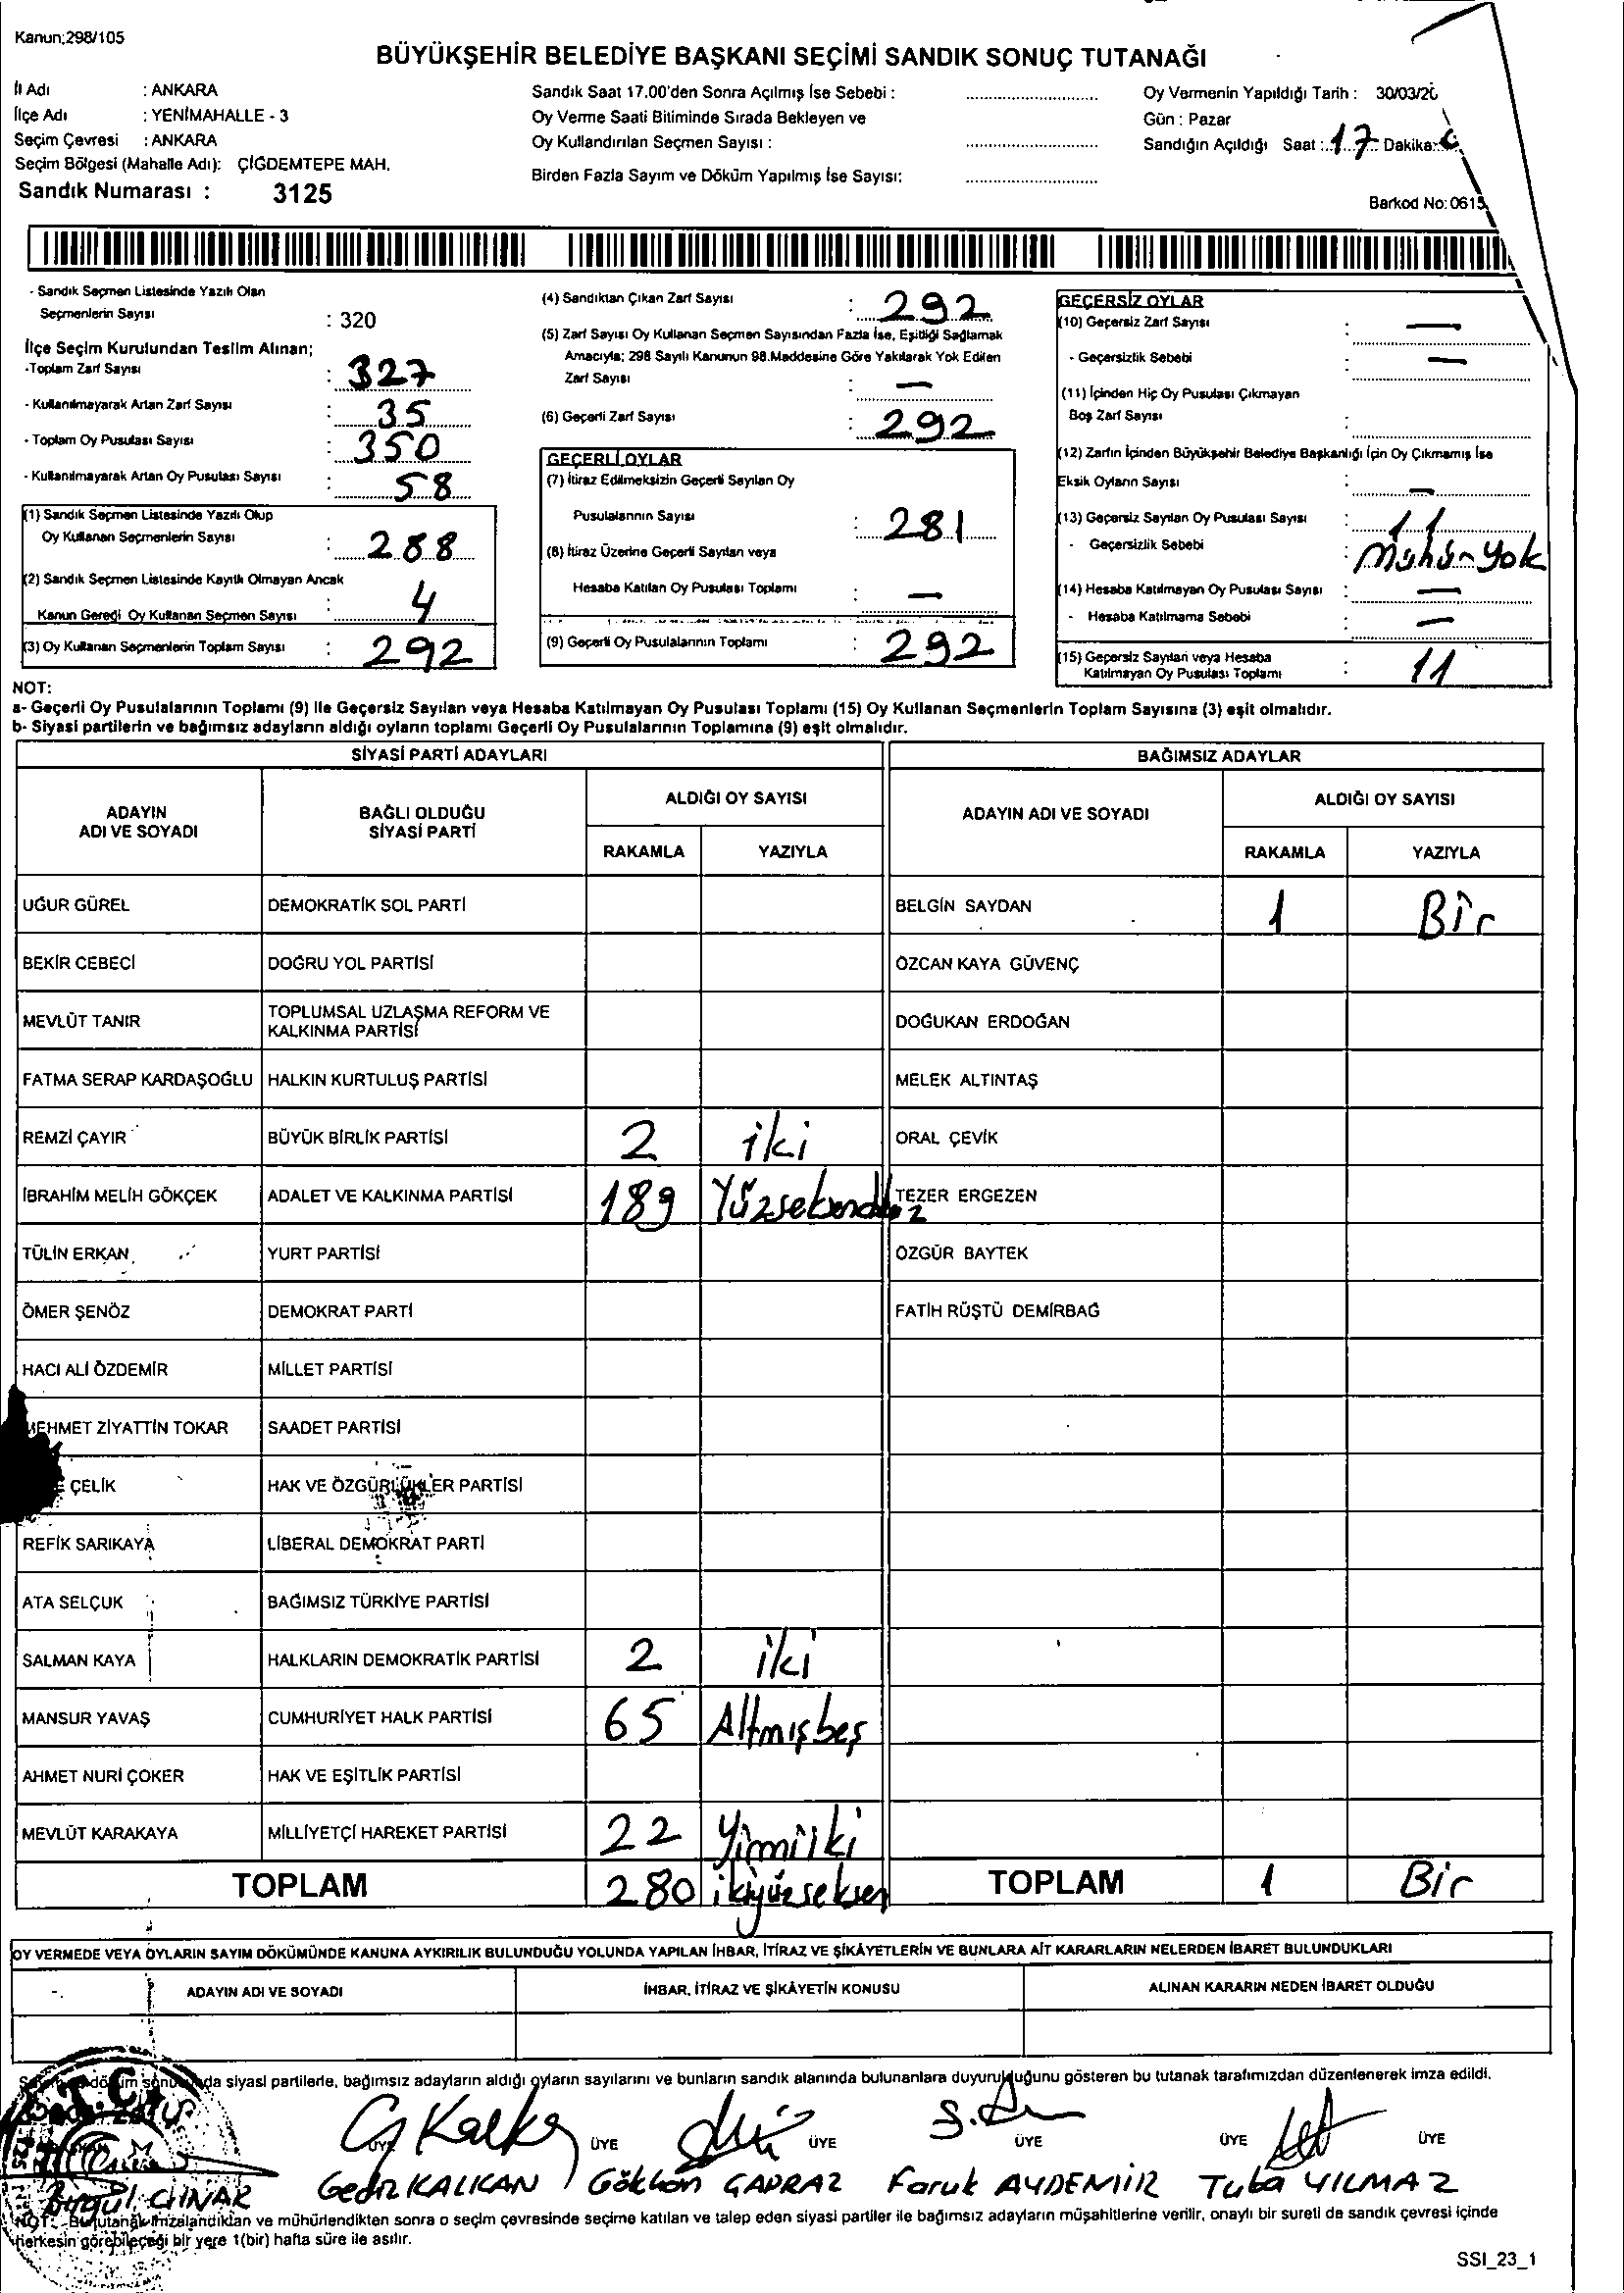 Kanun;298/105
BÜYÜKŞEHİR BELEDİYE BAŞKANI SEÇİMİ SANDIK SONUÇ TUTANAĞI
İl Adı : ANKARA
İlçe Adı : YENİMAHALLE - 3
Seçim Çevresi : ANKARA
Seçim Bölgesi (Mahalle Adı): ÇİĞDEMTEPE MAH.
Sandık Numarası : 3125
Sandık Saat 17.00'den Sonra Açılmış İse Sebebi :
Oy Verme Saati Bitiminde Sırada Bekleyen ve
Oy Kullandırılan Seçmen Sayısı :
Birden Fazla Sayım ve Döküm Yapılmış İse Sayısı:
Oy Vermenin Yapıldığı Tarih : 30/03/20
Gün : Pazar
Sandığın Açıldığı Saat : 17 Dakika:
Barkod No: 0615
- Sandık Seçmen Listesinde Yazılı Olan
Seçmenlerin Sayısı : 320
İlçe Seçim Kurulundan Teslim Alınan;
-Toplam Zarf Sayısı : 327
- Kullanılmayarak Artan Zarf Sayısı : 35
- Toplam Oy Pusulası Sayısı : 350
- Kullanılmayarak Artan Oy Pusulası Sayısı : 58
(1) Sandık Seçmen Listesinde Yazılı Olup
Oy Kullanan Seçmenlerin Sayısı : 288
(2) Sandık Seçmen Listesinde Kayıtlı Olmayan Ancak
Kanun Gereği Oy Kullanan Seçmen Sayısı : 4
(3) Oy Kullanan Seçmenlerin Toplam Sayısı : 292
(4) Sandıktan Çıkan Zarf Sayısı : 292
(5) Zarf Sayısı Oy Kullanan Seçmen Sayısından Fazla İse, Eşitliği Sağlamak
Amacıyla; 298 Sayılı Kanunun 98.Maddesine Göre Yakılarak Yok Edilen
Zarf Sayısı : —
(6) Geçerli Zarf Sayısı : 292
GEÇERLİ OYLAR
(7) İtiraz Edilmeksizin Geçerli Sayılan Oy
Pusulalarının Sayısı : 281
(8) İtiraz Üzerine Geçerli Sayılan veya
Hesaba Katılan Oy Pusulası Toplamı : —
(9) Geçerli Oy Pusulalarının Toplamı : 292
GEÇERSİZ OYLAR
(10) Geçersiz Zarf Sayısı : —
- Geçersizlik Sebebi : —
(11) İçinden Hiç Oy Pusulası Çıkmayan
Boş Zarf Sayısı :
(12) Zarfın İçinden Büyükşehir Belediye Başkanlığı İçin Oy Çıkmamış İse
Eksik Oyların Sayısı : —
(13) Geçersiz Sayılan Oy Pusulası Sayısı : 11
- Geçersizlik Sebebi : Mühür yok
(14) Hesaba Katılmayan Oy Pusulası Sayısı : —
- Hesaba Katılmama Sebebi : —
(15) Geçersiz Sayılan veya Hesaba
Katılmayan Oy Pusulası Toplamı : 11
NOT:
a- Geçerli Oy Pusulalarının Toplamı (9) ile Geçersiz Sayılan veya Hesaba Katılmayan Oy Pusulası Toplamı (15) Oy Kullanan Seçmenlerin Toplam Sayısına (3) eşit olmalıdır.
b- Siyasi partilerin ve bağımsız adayların aldığı oyların toplamı Geçerli Oy Pusulalarının Toplamına (9) eşit olmalıdır.
SİYASİ PARTİ ADAYLARI BAĞIMSIZ ADAYLAR
ADAYIN
ADI VE SOYADI
BAĞLI OLDUĞU
SİYASİ PARTİ
ALDIĞI OY SAYISI
RAKAMLA YAZIYLA
ADAYIN ADI VE SOYADI
ALDIĞI OY SAYISI
RAKAMLA YAZIYLA
UĞUR GÜREL DEMOKRATİK SOL PARTİ BELGİN SAYDAN 1 Bir
BEKİR CEBECİ DOĞRU YOL PARTİSİ ÖZCAN KAYA GÜVENÇ
MEVLÜT TANIR TOPLUMSAL UZLAŞMA REFORM VE
KALKINMA PARTİSİ DOĞUKAN ERDOĞAN
FATMA SERAP KARDAŞOĞLU HALKIN KURTULUŞ PARTİSİ MELEK ALTINTAŞ
REMZİ ÇAYIR BÜYÜK BİRLİK PARTİSİ 2 iki ORAL ÇEVİK
İBRAHİM MELİH GÖKÇEK ADALET VE KALKINMA PARTİSİ 189 Yüzseksendokuz TEZER ERGEZEN
TÜLİN ERKAN YURT PARTİSİ ÖZGÜR BAYTEK
ÖMER ŞENÖZ DEMOKRAT PARTİ FATİH RÜŞTÜ DEMİRBAĞ
HACI ALİ ÖZDEMİR MİLLET PARTİSİ
MEHMET ZİYATTİN TOKAR SAADET PARTİSİ
ÇELİK HAK VE ÖZGÜRLÜKLER PARTİSİ
REFİK SARIKAYA LİBERAL DEMOKRAT PARTİ
ATA SELÇUK BAĞIMSIZ TÜRKİYE PARTİSİ
SALMAN KAYA HALKLARIN DEMOKRATİK PARTİSİ 2 iki
MANSUR YAVAŞ CUMHURİYET HALK PARTİSİ 65 Altmışbeş
AHMET NURİ ÇOKER HAK VE EŞİTLİK PARTİSİ
MEVLÜT KARAKAYA MİLLİYETÇİ HAREKET PARTİSİ 22 Yirmiiki
TOPLAM 280 ikiyüzseksen TOPLAM 1 Bir
OY VERMEDE VEYA OYLARIN SAYIM DÖKÜMÜNDE KANUNA AYKIRILIK BULUNDUĞU YOLUNDA YAPILAN İHBAR, İTİRAZ VE ŞİKÂYETLERİN VE BUNLARA AİT KARARLARIN NELERDEN İBARET BULUNDUKLARI
ADAYIN ADI VE SOYADI İHBAR, İTİRAZ VE ŞİKÂYETİN KONUSU ALINAN KARARIN NEDEN İBARET OLDUĞU
döküm sonucunda siyasi partilerle, bağımsız adayların aldığı oyların sayılarını ve bunların sandık alanında bulunanlara duyurulduğunu gösteren bu tutanak tarafımızdan düzenlenerek imza edildi.
T.C.
ÜYE ÜYE ÜYE ÜYE ÜYE ÜYE
Birgül ÇINAR Gediz KALKAN Gökhan ÇAPRAZ Faruk AYDEMİR Tuba YILMAZ
NOT: - Bu tutanak imzalandıktan ve mühürlendikten sonra o seçim çevresinde seçime katılan ve talep eden siyasi partiler ile bağımsız adayların müşahitlerine verilir, onaylı bir sureti de sandık çevresi içinde
herkesin görebileceği bir yere 1(bir) hafta süre ile asılır.
SSI_23_1